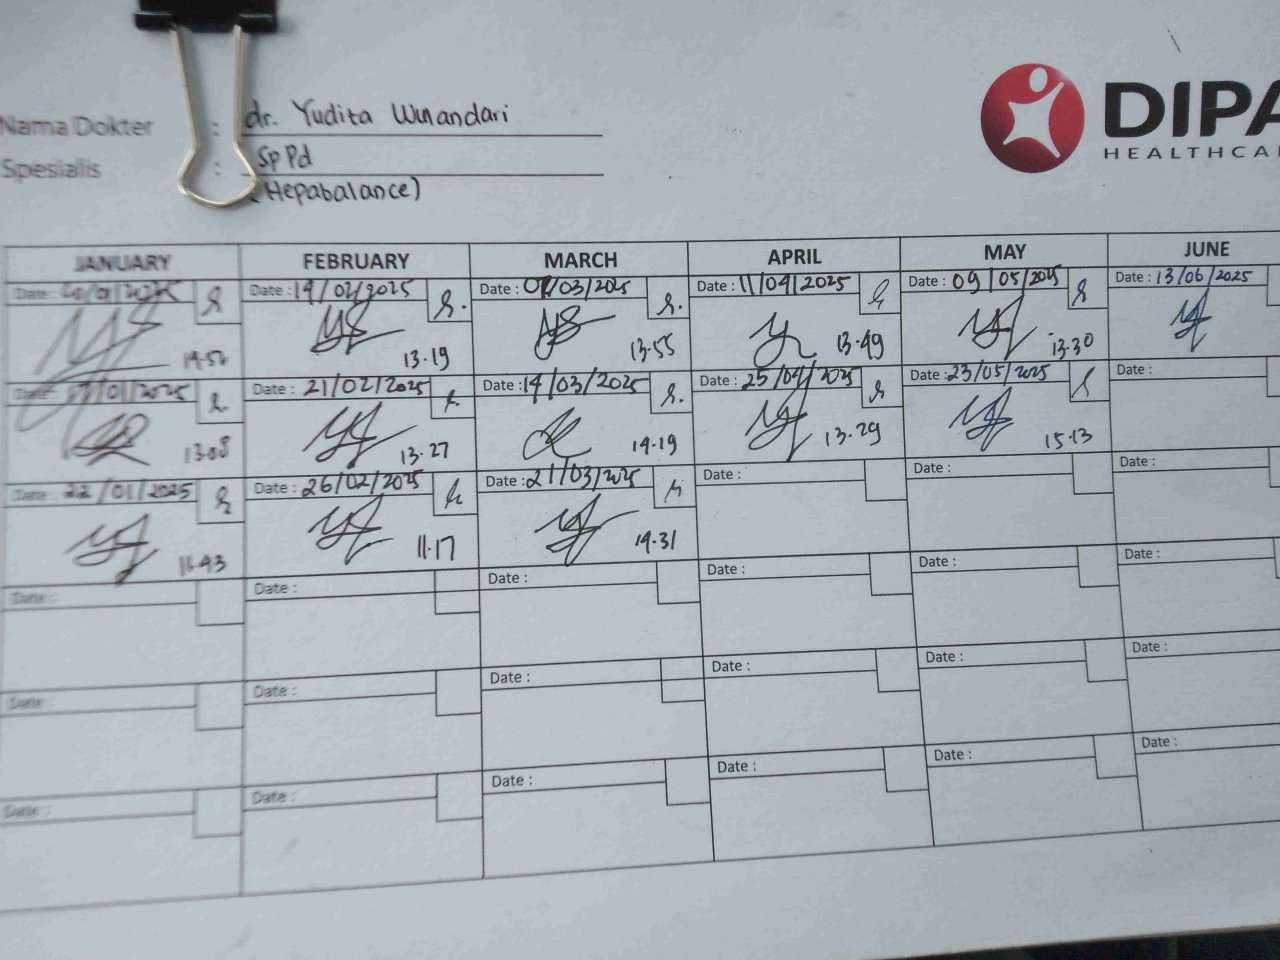 Nama Dokter : dr. Yudita Wunandari
Spesialis : SpPd
(Hepabalance)
DIPA
HEALTHCA
JANUARY FEBRUARY MARCH APRIL MAY JUNE
Date : Date : 14/02/2025 Date : 07/03/2025 Date : 11/04/2025 Date : 09/05/2025 Date : 13/06/2025
14.52 13.19 13.55 13.49 13.30
Date : 17/01/2025 Date : 21/02/2025 Date : 14/03/2025 Date : 25/04/2025 Date : 23/05/2025 Date :
13.08 13.27 14.19 13.29 15.13
Date : 22/01/2025 Date : 26/02/2025 Date : 21/03/2025 Date : Date : Date :
11.43 11.17 14.31
Date : Date : Date : Date : Date : Date :
Date : Date : Date : Date : Date : Date :
Date : Date : Date : Date : Date : Date :